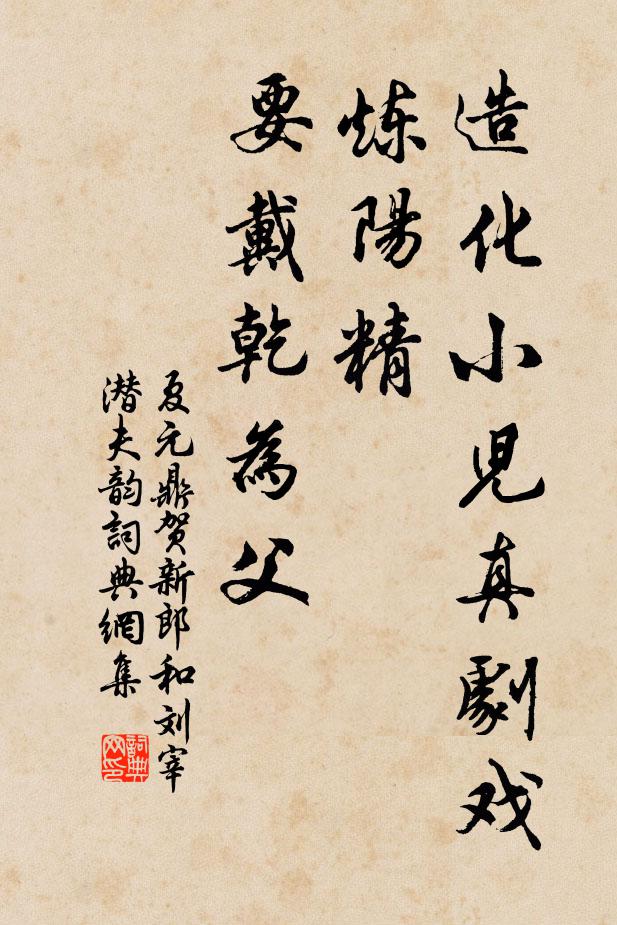 造化小児真劇戏
炼陽精
要戴乾為父
夏元鼎贺新郎和刘宰
潜夫韵詞典網集
詞典网印